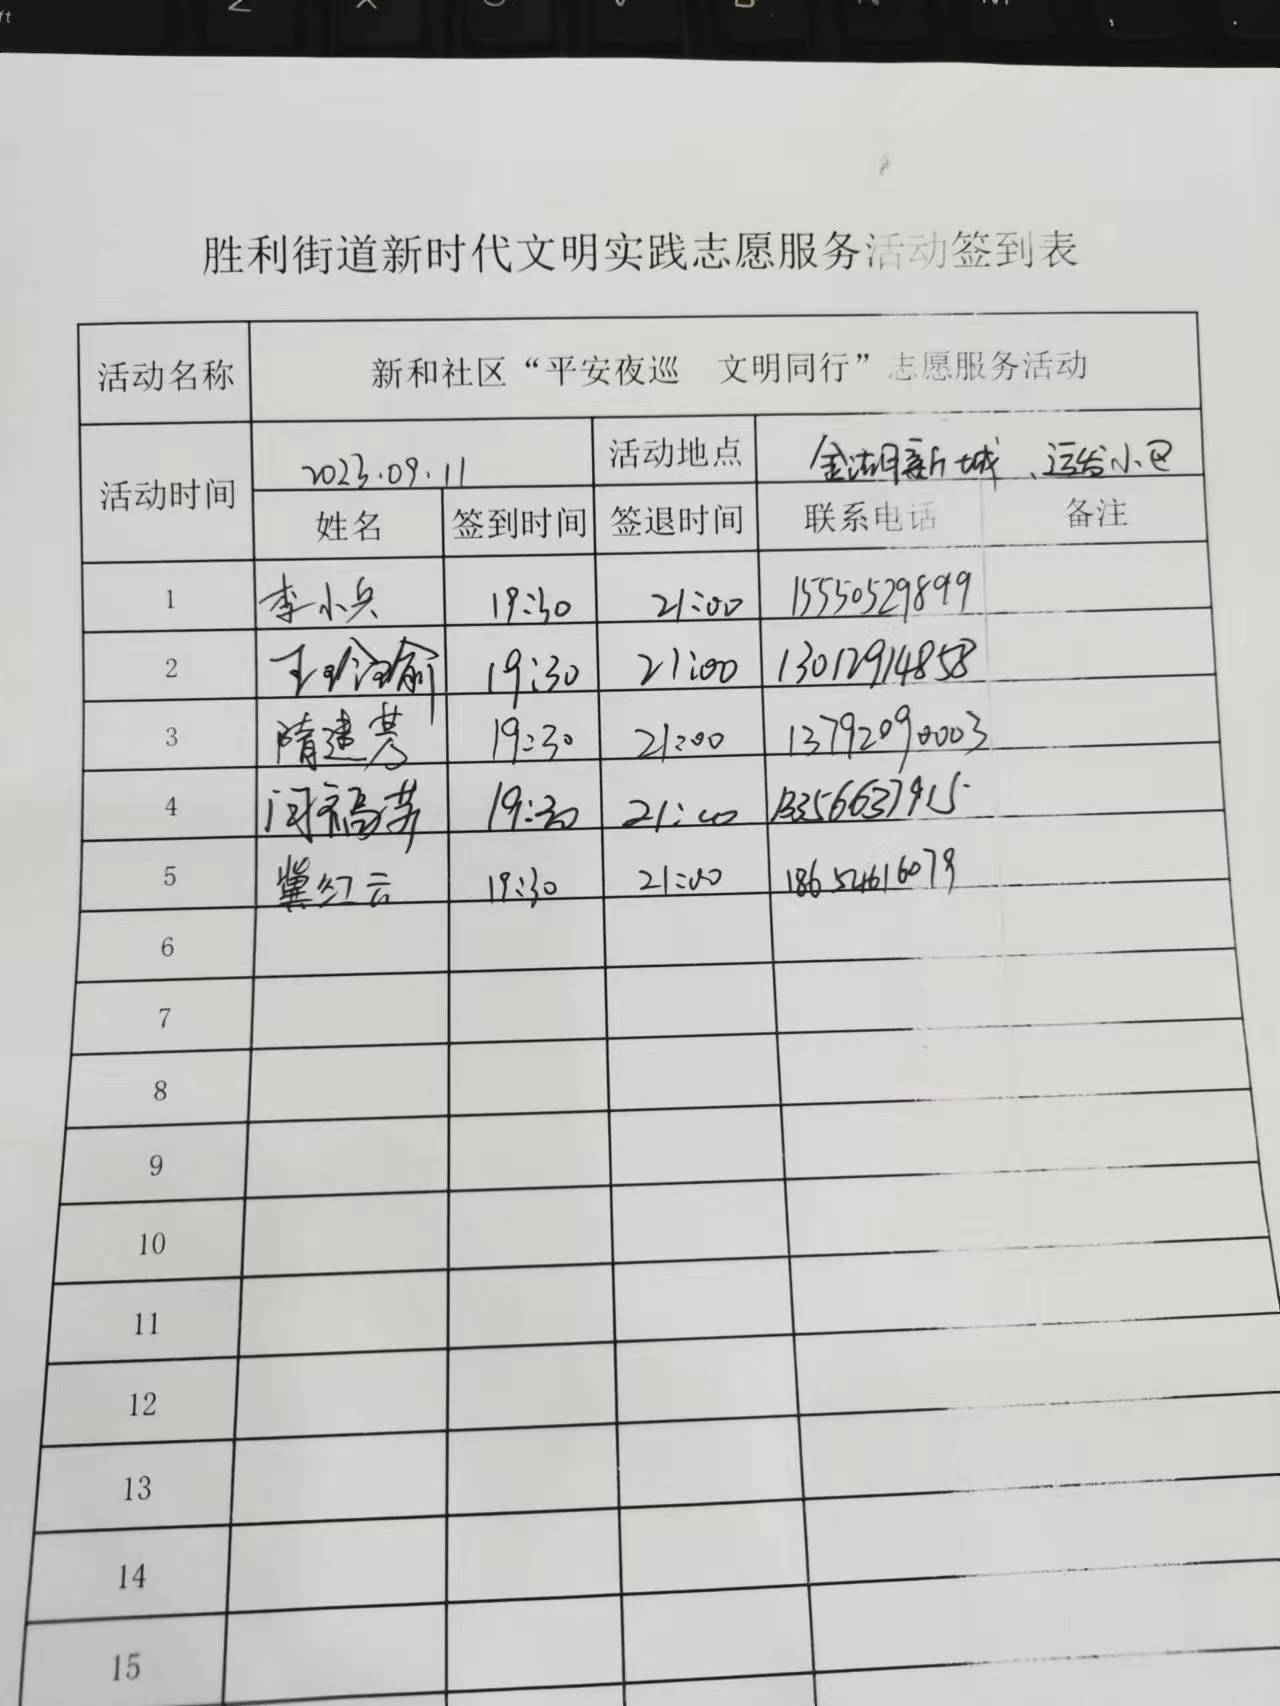 胜利街道新时代文明实践志愿服务活动签到表
活动名称 新和社区“平安夜巡 文明同行”志愿服务活动
活动时间 2023.09.11 活动地点 金湖新城、运发小区
姓名 签到时间 签退时间 联系电话 备注
1 李小兵 19:30 21:00 15550529899
2 19:30 21:00 13012914858
3 隋建 19:30 21:00 13792090003
4 闫福 19:30 21:00 13356637915
5 冀红云 19:30 21:00 18654616079
6
7
8
9
10
11
12
13
14
15